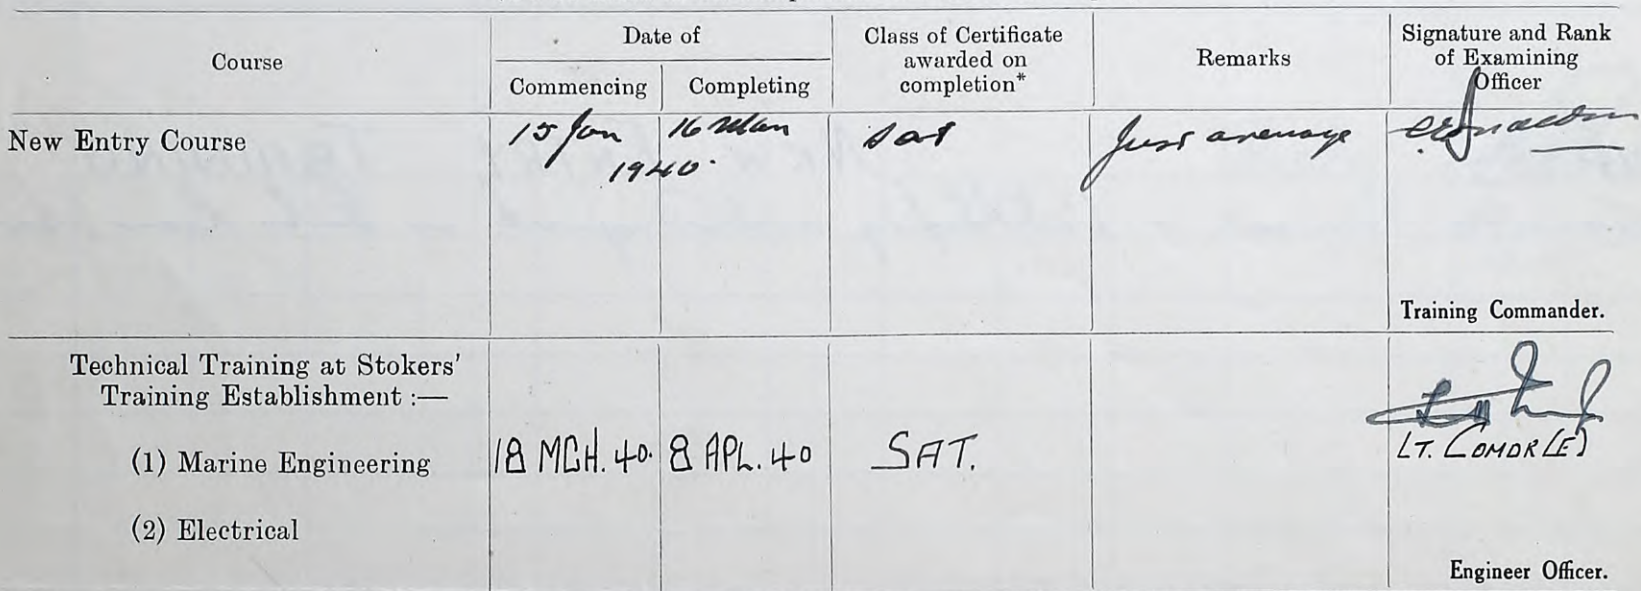 Course
Date of
Commencing
Completing
Class of Certificate
awarded on
completion*
Remarks
Signature and Rank
of Examining
Officer
New Entry Course
15 Jan
16 Mar
1940.
Sat
Just average
Training Commander.
Technical Training at Stokers'
Training Establishment :—
(1) Marine Engineering
18 MCH. 40.
8 APL. 40
SAT.
LT. COMDR (E)
(2) Electrical
Engineer Officer.